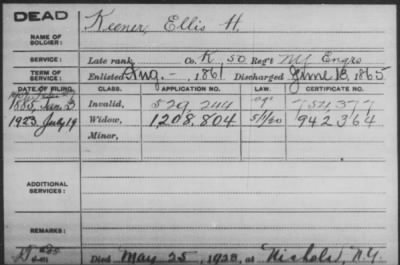 DEAD
NAME OF SOLDIER: Keener, Ellis H.
SERVICE: Late rank, Co. K, 50 Reg't NY Engrs
TERM OF SERVICE: Enlisted Aug. - , 1861 Discharged June 13, 1865
DATE OF FILING. CLASS. APPLICATION NO. LAW. CERTIFICATE NO.
1885, Jan. 3 Invalid, 529,244 754,377
1923 July 19 Widow, 1208,804 5/1/20 942364
Minor,
ADDITIONAL SERVICES:
REMARKS:
Died May 25, 1923, at Nichols, N.Y.